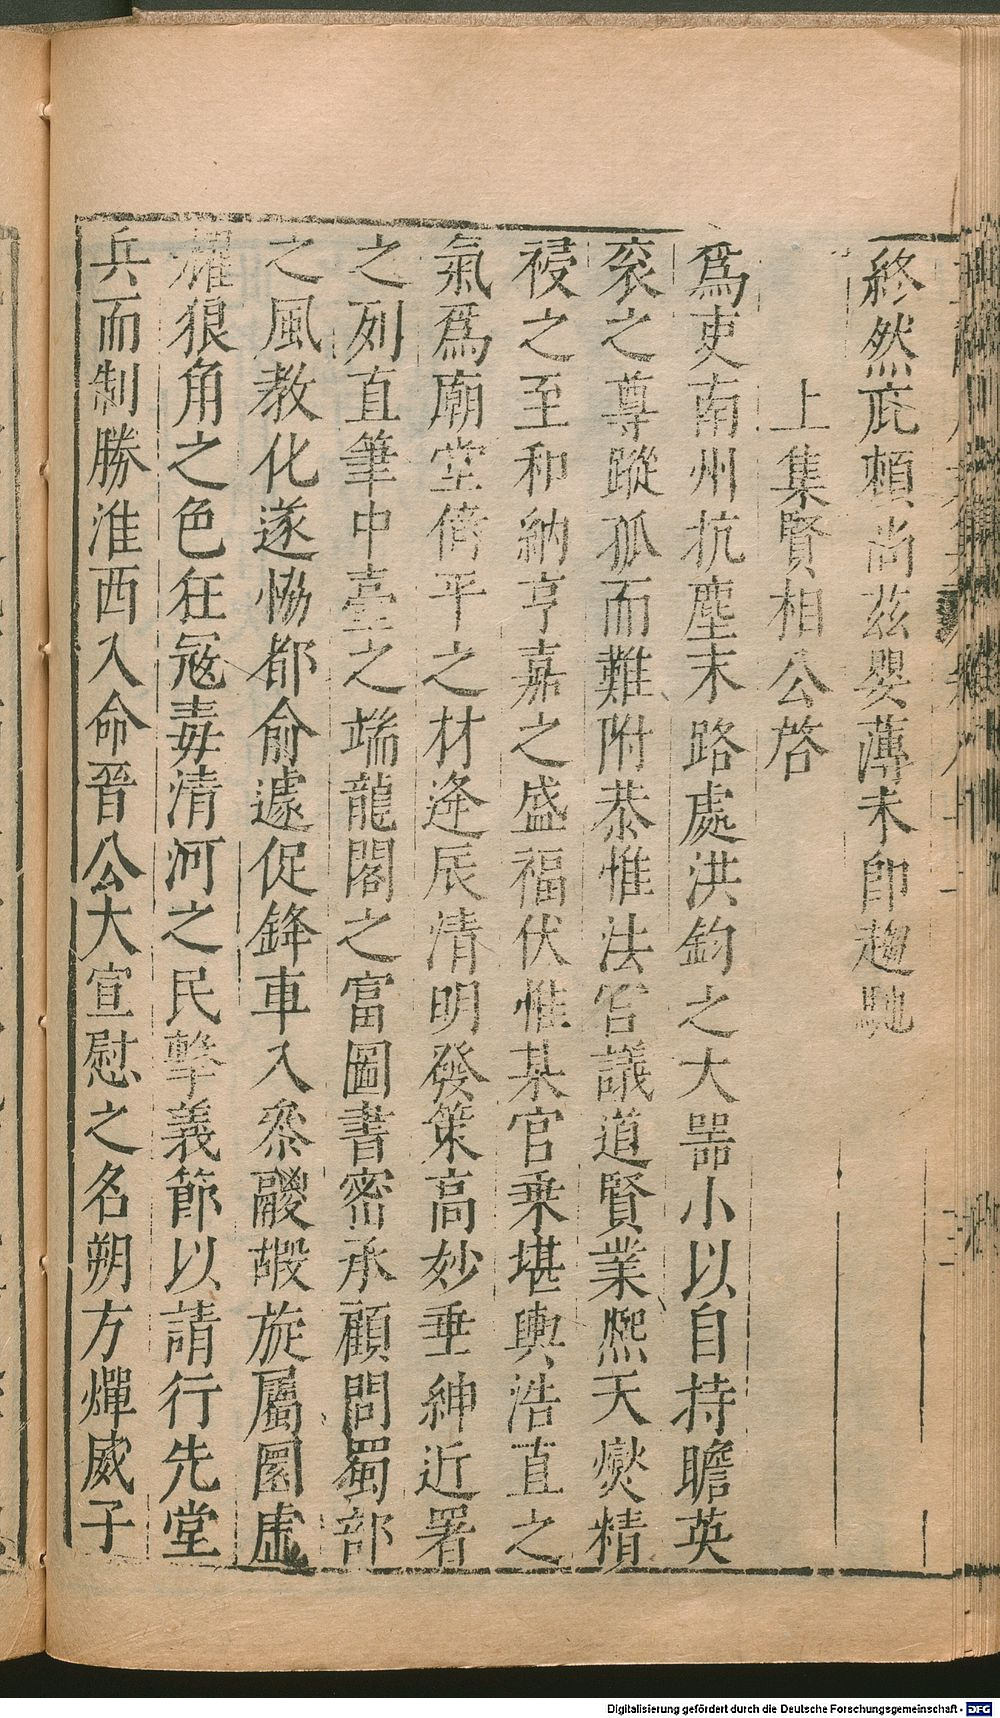 終然庇頼尚茲嬰薄未卽趨馳
上集賢相公啓
爲吏南州抗塵末路處洪鈞之大噐小以自持瞻英
衮之尊蹤孤而難附恭惟法宫議道賢業熈天爕精
祲之至和納亨嘉之盛福伏惟某官乗堪輿浩直之
氣爲廟堂倚平之材逄辰清明發策高妙垂紳近署
之列直筆中臺之端龍閣之富圖書密承顧問蜀部
之風教化遂恊都俞遽促鋒車入叅醲嘏旋屬圂虚
耀狼角之色在冦毒清河之民擊義節以請行先堂
兵而制勝淮西入命晉公大宣慰之名朔方燀威子
Digitalisierung gefördert durch die Deutsche Forschungsgemeinschaft - DFG